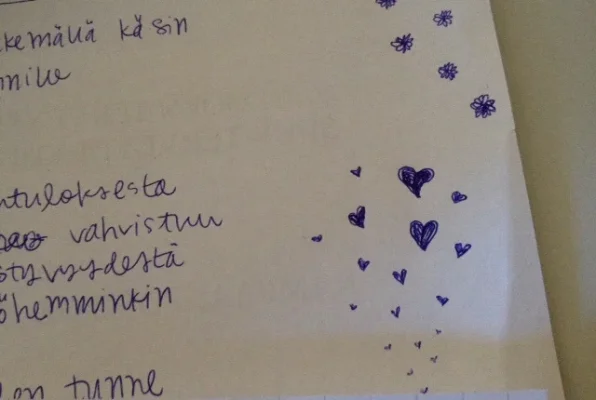 kemällä käsin
tuloksesta
vahvistuu
styvyydestä
öhemminkin
en tunne